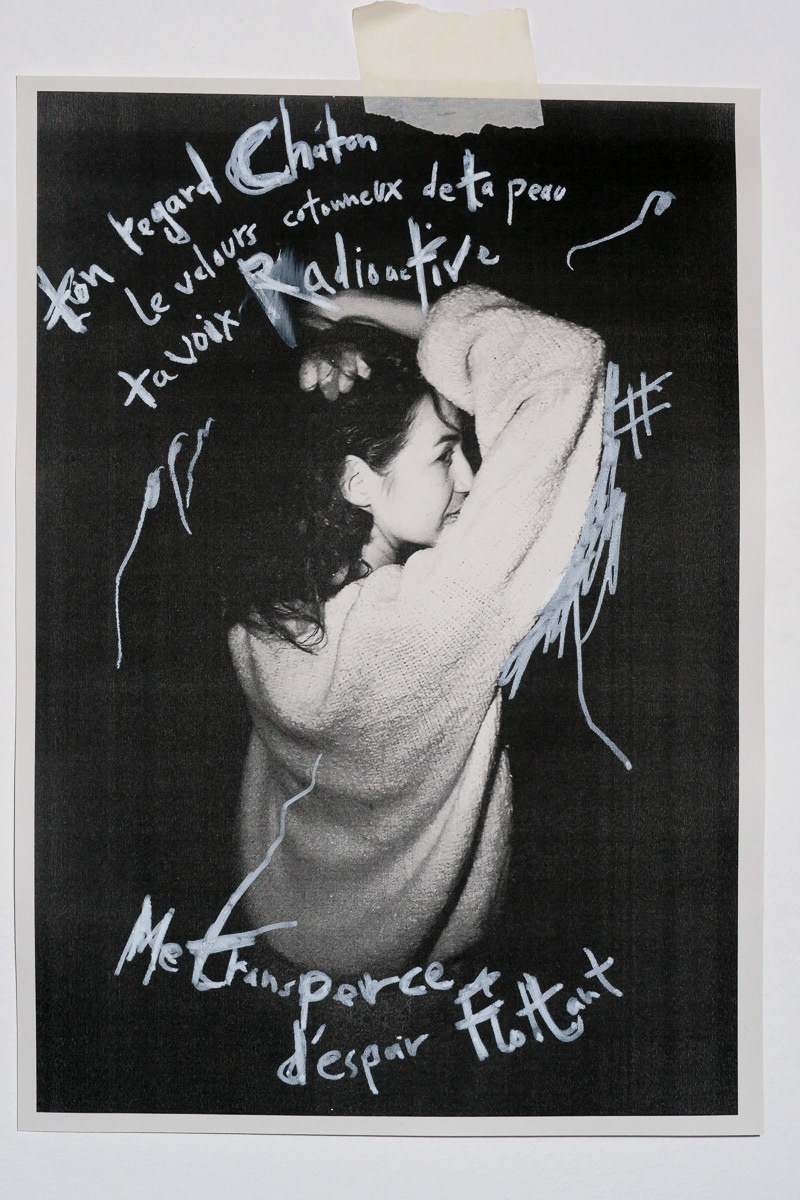 ton regard Châton
le velours cotonneux de ta peau
ta voix Radioactive
#
Me transperce
d'espoir flottant